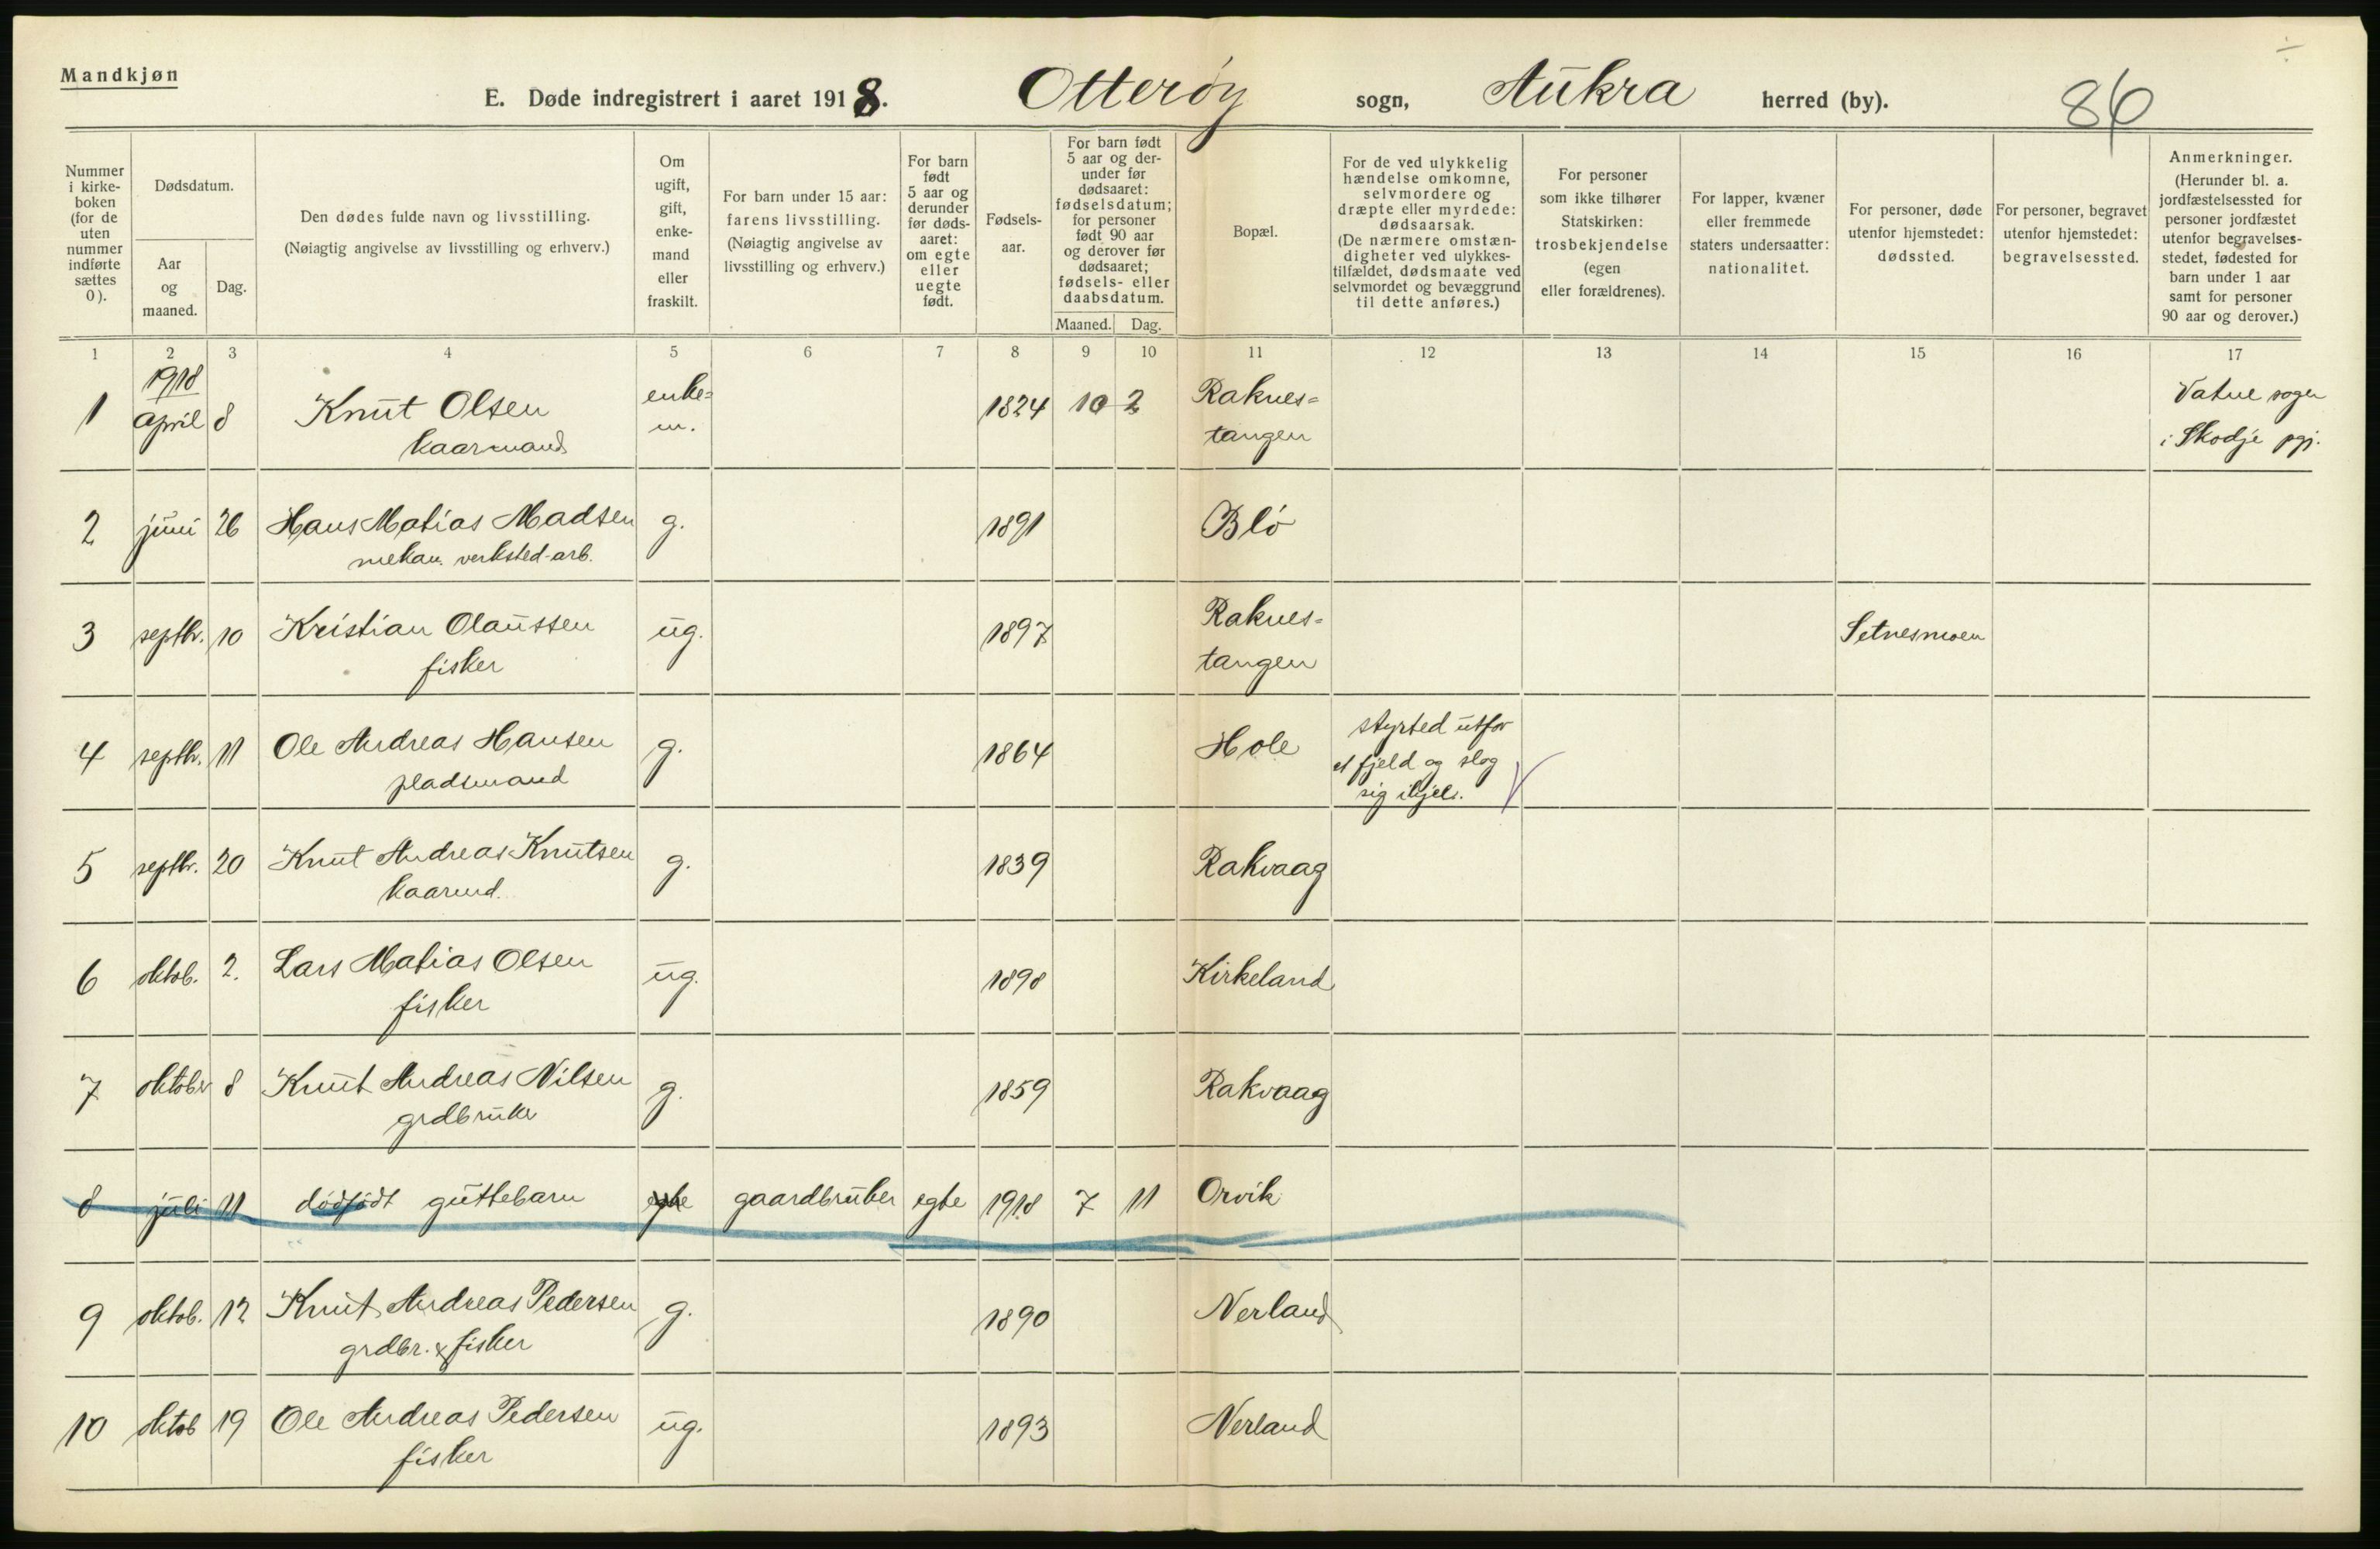 Mandkjøn
E. Døde indregistrert i aaret 1918. Otterøy sogn, Aukra herred (by). 86
Nummer i kirke-boken (for de uten nummer indførte sættes 0).
Dødsdatum.
Aar og maaned.
Dag.
Den dødes fulde navn og livsstilling.
(Nøiagtig angivelse av livsstilling og erhverv.)
Om ugift, gift, enke-mand eller fraskilt.
For barn under 15 aar: farens livsstilling. (Nøiagtig angivelse av livsstilling og erhverv.)
For barn født 5 aar og derunder før døds-aaret: om egte eller uegte født.
Fødsels-aar.
For barn født 5 aar og der-under før dødsaaret: fødselsdatum; for personer født 90 aar og derover før dødsaaret; fødsels- eller daabsdatum.
Maaned. Dag.
Bopæl.
For de ved ulykkelig hændelse omkomne, selvmordere og dræpte eller myrdede: dødsaarsak. (De nærmere omstæn-digheter ved ulykkes-tilfældet, dødsmaate ved selvmordet og bevæggrund til dette anføres.)
For personer som ikke tilhører Statskirken: trosbekjendelse (egen eller forældrenes).
For lapper, kvæner eller fremmede staters undersaatter: nationalitet.
For personer, døde utenfor hjemstedet: dødssted.
For personer, begravet utenfor hjemstedet: begravelsessted.
Anmerkninger. (Herunder bl. a. jordfæstelsessted for personer jordfæstet utenfor begravelses-stedet, fødested for barn under 1 aar samt for personer 90 aar og derover.)
1 2 3 4 5 6 7 8 9 10 11 12 13 14 15 16 17
1918
1 april 8 Knut Olsen enke= 1824 10 2 Raknes= Vatne sogn
kaarmand m. tangen i Skodje pgj.
2 juni 26 Hans Matias Madsen g. 1891 Blø
mekan. verksted-arb.
3 septbr. 10 Kristian Olaussen ug. 1897 Raknes= Setnesmoen
fisker tangen
4 septbr. 11 Ole Andreas Hansen g. 1864 Hole styrted utfor
pladsmand et fjeld og slog
sig ihjel.
5 septbr. 20 Knut Andreas Knutsen g. 1839 Rakvaag
kaarmd.
6 oktob. 2. Lars Matias Olsen ug. 1898 Kirkeland
fisker
7 oktober 8 Knut Andreas Nilsen g. 1859 Rakvaag
grdbruker
8 juli 11 dødfødt guttebarn egte gaardbruker egte 1918 7 11 Orvik
9 oktob. 12 Knut Andreas Pedersen g. 1890 Nerland
grdbr. & fisker
10 oktob 19 Ole Andreas Pedersen ug. 1893 Nerland
fisker